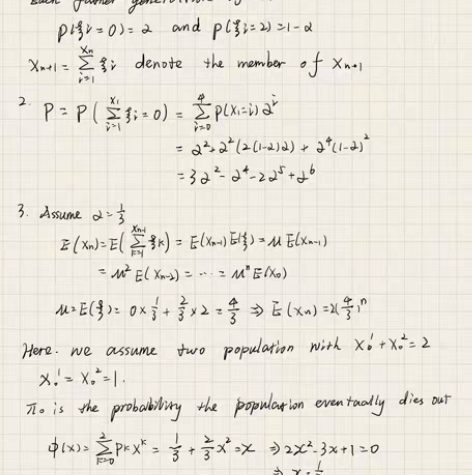 each father generation
P(ξi = 0) = α and P(ξi = 2) = 1 - α
Xn+1 = Σ_{i=1}^{Xn} ξi denote the member of Xn+1
2. P = P( Σ_{i=1}^{X1} ξi = 0) = Σ_{i=0}^{4} P(X1=i) α^i
= α² + α²(2(1-α)α) + α⁴(1-α)²
= 3α² - α⁴ - 2α⁵ + α⁶
3. Assume α = 1/3
E(Xn) = E( Σ_{k=1}^{Xn-1} ξk) = E(Xn-1) E(ξ) = μ E(Xn-1)
= μ² E(Xn-2) = ... = μ^n E(X0)
μ = E(ξ) = 0 × 1/3 + 2/3 × 2 = 4/3 ⇒ E(Xn) = 2(4/3)^n
Here. we assume two population with X0^1 + X0^2 = 2
X0^1 = X0^2 = 1.
π0 is the probability the population eventually dies out
φ(x) = Σ_{k=0}^{2} Pk X^k = 1/3 + 2/3 x² = x ⇒ 2x² - 3x + 1 = 0